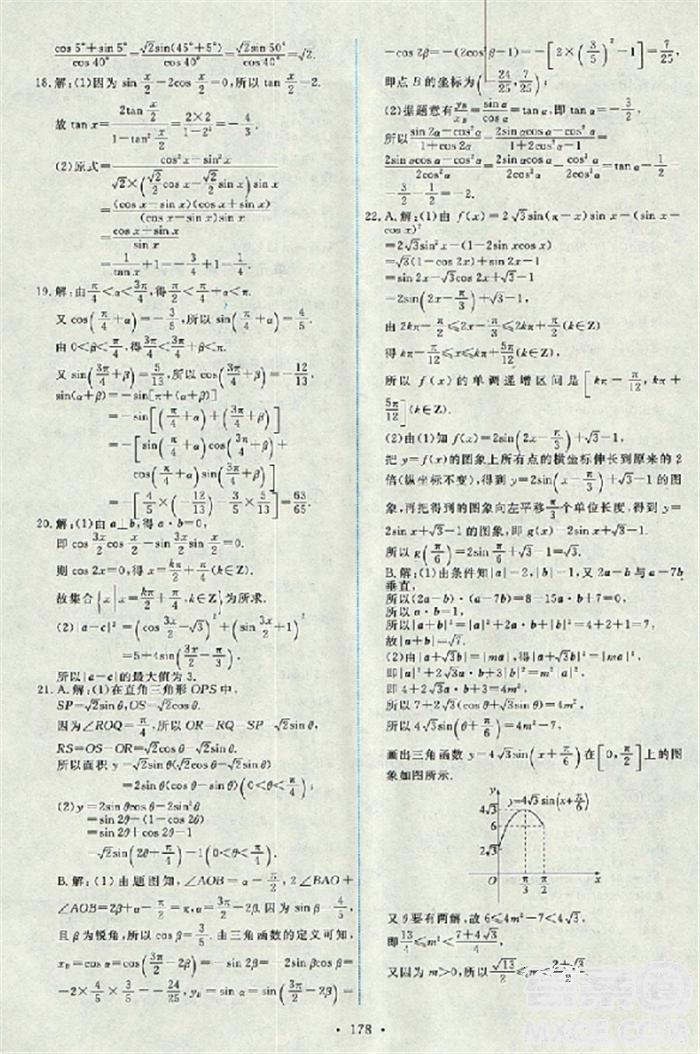 $\frac{\cos 5°+\sin 5°}{\cos 40°}=\frac{\sqrt{2}\sin(45°+5°)}{\cos 40°}=\frac{\sqrt{2}\sin 50°}{\cos 40°}=\sqrt{2}.$
18.解:(1)因为 $\sin\frac{x}{2}-2\cos\frac{x}{2}=0$,所以 $\tan\frac{x}{2}=2.$
故 $\tan x=\frac{2\tan\frac{x}{2}}{1-\tan^2\frac{x}{2}}=\frac{2×2}{1-2^2}=-\frac{4}{3}.$
(2)原式$=\frac{\cos^2x-\sin^2x}{\sqrt{2}×\left(\frac{\sqrt{2}}{2}\cos x-\frac{\sqrt{2}}{2}\sin x\right)\sin x}$
$=\frac{(\cos x-\sin x)(\cos x+\sin x)}{(\cos x-\sin x)\sin x}$
$=\frac{\cos x+\sin x}{\sin x}$
$=\frac{1}{\tan x}+1=-\frac{3}{4}+1=\frac{1}{4}.$
19.解:由$\frac{π}{4}<α<\frac{3π}{4}$,得$\frac{π}{2}<\frac{π}{4}+α<π.$
又 $\cos\left(\frac{π}{4}+α\right)=-\frac{3}{5}$,所以 $\sin\left(\frac{π}{4}+α\right)=\frac{4}{5}.$
由 $0<β<\frac{π}{4}$,得$\frac{3π}{4}<\frac{3π}{4}+β<π.$
又 $\sin\left(\frac{3π}{4}+β\right)=\frac{5}{13}$,所以 $\cos\left(\frac{3π}{4}+β\right)=-\frac{12}{13}.$
$\sin(α+β)=-\sin[π+(α+β)]$
$=-\sin\left[\left(\frac{π}{4}+α\right)+\left(\frac{3π}{4}+β\right)\right]$
$=-\left[\sin\left(\frac{π}{4}+α\right)\cos\left(\frac{3π}{4}+β\right)+\cos\left(\frac{π}{4}+α\right)\sin\left(\frac{3π}{4}+β\right)\right]$
$=-\left[\frac{4}{5}×\left(-\frac{12}{13}\right)-\frac{3}{5}×\frac{5}{13}\right]=\frac{63}{65}.$
20.解:(1)由 a⊥b,得 a·b=0,
即 $\cos\frac{3x}{2}\cos\frac{x}{2}-\sin\frac{3x}{2}\sin\frac{x}{2}=0.$
则 $\cos 2x=0$,得 $x=\frac{kπ}{2}+\frac{π}{4}(k∈Z).$
故集合$\left\{x\left|x=\frac{kπ}{2}+\frac{π}{4},k∈Z\right.\right\}$为所求.
(2)$|a-c|^2=\left(\cos\frac{3x}{2}-\sqrt{3}\right)^2+\left(\sin\frac{3x}{2}+1\right)^2$
$=5+4\sin\left(\frac{3x}{2}-\frac{π}{3}\right),$
所以|a-c|的最大值为 3.
21.A.解:(1)在直角三角形 OPS 中,
$SP=\sqrt{2}\sin θ,OS=\sqrt{2}\cos θ.$
因为∠ROQ=$\frac{π}{4}$,所以 $OR=RQ=SP=\sqrt{2}\sin θ,$
$RS=OS-OR=\sqrt{2}\cos θ-\sqrt{2}\sin θ.$
所以面积 $y=\sqrt{2}\sin θ(\sqrt{2}\cos θ-\sqrt{2}\sin θ)$
$=2\sin θ(\cos θ-\sin θ)\left(0<θ<\frac{π}{4}\right).$
(2)$y=2\sin θ\cos θ-2\sin^2θ$
$=\sin 2θ-(1-\cos 2θ)$
$=\sin 2θ+\cos 2θ-1$
$=\sqrt{2}\sin\left(2θ+\frac{π}{4}\right)-1\left(0<θ<\frac{π}{4}\right).$
B.解:(1)由题图知,∠AOB=α-$\frac{π}{2}$,2∠BAO+
∠AOB=2β+α-$\frac{π}{2}$=π,α=$\frac{3π}{2}$-2β.因为 $\sin β=\frac{4}{5}$,
且β为锐角,所以 $\cos β=\frac{3}{5}$.由三角函数的定义可知,
$x_B=\cos α=\cos\left(\frac{3π}{2}-2β\right)=-\sin 2β=-2\sin β\cos β=$
$-2×\frac{4}{5}×\frac{3}{5}=-\frac{24}{25},y_B=\sin α=\sin\left(\frac{3π}{2}-2β\right)=$
$-\cos 2β=-(2\cos^2β-1)=-\left[2×\left(\frac{3}{5}\right)^2-1\right]=\frac{7}{25},$
即点 B 的坐标为$\left(-\frac{24}{25},\frac{7}{25}\right).$
(2)据题意有$\frac{y_B}{x_B}=\frac{\sin α}{\cos α}=\tan α$,即 $\tan α=-\frac{3}{2}$,
所以$\frac{\sin 2α-\cos^2α}{1+\cos 2α}=\frac{2\sin α\cos α-\cos^2α}{1+2\cos^2α-1}=$
$\frac{2\sin α\cos α}{2\cos^2α}-\frac{\cos^2α}{2\cos^2α}=\frac{\sin α}{\cos α}-\frac{\cos^2α}{2\cos^2α}=\tan α-\frac{1}{2}=$
$-\frac{3}{2}-\frac{1}{2}=-2.$
22.A.解:(1)由 $f(x)=2\sqrt{3}\sin(π-x)\sin x-(\sin x-$
$\cos x)^2$
$=2\sqrt{3}\sin^2x-(1-2\sin x\cos x)$
$=\sqrt{3}(1-\cos 2x)+\sin 2x-1$
$=\sin 2x-\sqrt{3}\cos 2x+\sqrt{3}-1$
$=2\sin\left(2x-\frac{π}{3}\right)+\sqrt{3}-1,$
由 $2kπ-\frac{π}{2}≤2x-\frac{π}{3}≤2kπ+\frac{π}{2}(k∈Z)$
得 $kπ-\frac{π}{12}≤x≤kπ+\frac{5π}{12}(k∈Z)$
所以 f(x)的单调递增区间是$\left[kπ-\frac{π}{12},kπ+\right.$
$\left.\frac{5π}{12}\right](k∈Z).$
(2)由(1)知 $f(x)=2\sin\left(2x-\frac{π}{3}\right)+\sqrt{3}-1,$
把 y=f(x)的图象上所有点的横坐标伸长到原来的 2
倍(纵坐标不变),得到 $y=2\sin\left(x-\frac{π}{3}\right)+\sqrt{3}-1$的图
象,再把得到的图象向左平移$\frac{π}{3}$个单位长度,得到 y=
$2\sin x+\sqrt{3}-1$ 的图象,即 $g(x)=2\sin x+\sqrt{3}-1.$
所以 $g\left(\frac{π}{6}\right)=2\sin\frac{π}{6}+\sqrt{3}-1=\sqrt{3}.$
B.解:(1)由条件知|a|=2,|b|=1,又 2a-b 与 a-7b
垂直,
所以(2a-b)·(a-7b)=8-15a·b+7=0.
所以 a·b=1.
所以$|a+b|^2=|a|^2+2a·b+|b|^2=4+2+1=7.$
故|a+b|=$\sqrt{7}$.
(2)由$|a+\sqrt{3}b|=|ma|$,得$|a+\sqrt{3}b|^2=|ma|^2.$
即 $|a|^2+2\sqrt{3}a·b+3|b|^2=m^2|a|^2.$
即 $4+2\sqrt{3}a·b+3=4m^2,$
所以 $7+2\sqrt{3}(\cos θ+\sqrt{3}\sin θ)=4m^2.$
所以 $4\sqrt{3}\sin\left(θ+\frac{π}{6}\right)=4m^2-7.$
画出三角函数 $y=4\sqrt{3}\sin\left(x+\frac{π}{6}\right)$在$\left[0,\frac{π}{2}\right]$上的图
象如图所示.
y
$y=4\sqrt{3}\sin(x+\frac{π}{6})$
$4\sqrt{3}$
6
$2\sqrt{3}$
O $\frac{π}{3}$ $\frac{π}{2}$ x
又θ要有两解,故 $6≤4m^2-7<4\sqrt{3}.$
即$\frac{13}{4}≤m^2<\frac{7+4\sqrt{3}}{4}.$
又因为 m>0,所以$\frac{\sqrt{13}}{2}≤m<\frac{2+\sqrt{3}}{2}.$
• 178 •